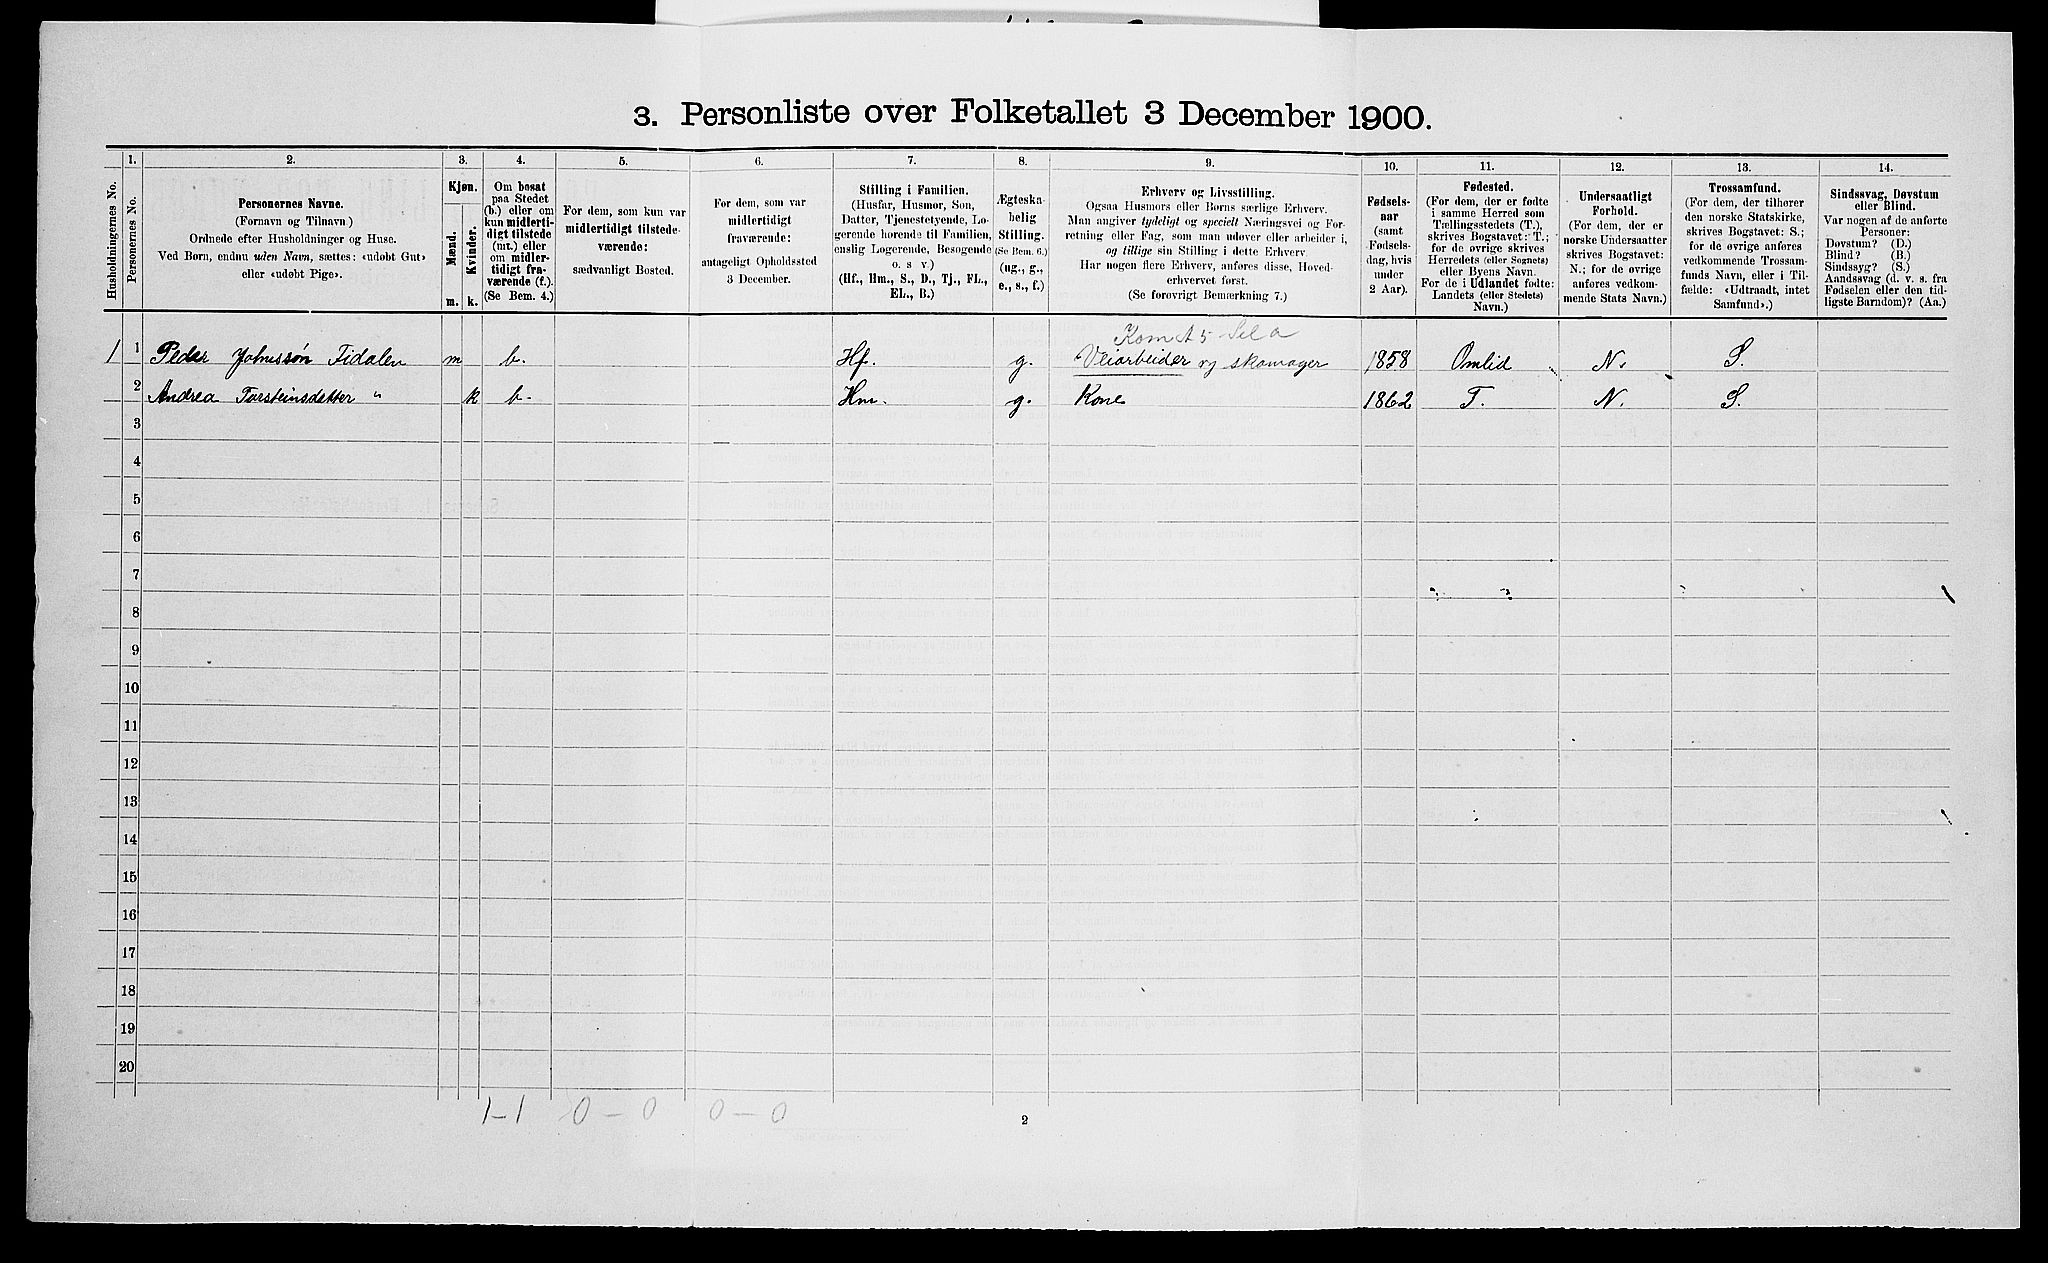 3. Personliste over Folketallet 3 December 1900.
1. 2. 3. 4. 5. 6. 7. 8. 9. 10. 11. 12. 13. 14.
Husholdningernes No.
Personernes No.
Personernes Navne.
(Fornavn og Tilnavn)
Ordnede efter Husholdninger og Huse.
Ved Børn, endnu uden Navn, sættes: «udøbt Gut»
eller «udøbt Pige».
Kjøn.
Mænd.
Kvinder.
m. k.
Om bosat
paa Stedet
(b.) eller om
kun midlerti-
digt tilstede
(mt.) eller
om midler-
tidigt fra-
værende (f.).
(Se Bem. 4.)
For dem, som kun var
midlertidigt tilstede-
værende:
sædvanligt Bosted.
For dem, som var
midlertidigt
fraværende:
antageligt Opholdssted
3 December.
Stilling i Familien.
(Husfar, Husmor, Søn,
Datter, Tjenestetyende, Lo-
gerende hørende til Familien,
enslig Logerende, Besøgende
o. s. v.)
(Hf., Hm., S., D., Tj., FL.,
EL., B.)
Ægteska-
belig
Stilling.
(Se Bem. 6.)
(ug., g.,
e., s., f.)
Erhverv og Livsstilling.
Ogsaa Husmors eller Børns særlige Erhverv.
Man angiver tydeligt og specielt Næringsvei og For-
retning eller Fag, som man udøver eller arbeider i,
og tillige sin Stilling i dette Erhverv
Har nogen flere Erhverv, anføres disse, Hoved-
erhvervet først.
(Se forøvrigt Bemærkning 7.)
Fødsels-
aar
(samt
Fødsels-
dag, hvis
under
2 Aar).
Fødested.
(For dem, der er fødte
i samme Herred som
Tællingsstedets (T.),
skrives Bogstavet: T.;
for de øvrige skrives
Herredets (eller Sognets)
eller Byens Navn.
For de i Udlandet fødte:
Landets (eller Stedets)
Navn.)
Undersaatligt
Forhold.
(For dem, der er
norske Undersaatter
skrives Bogstavet:
N.; for de øvrige
anføres vedkom-
mende Stats Navn.)
Trossamfund.
(For dem, der tilhører
den norske Statskirke,
skrives Bogstavet: S.;
for de øvrige anføres
vedkommende Trossam-
funds Navn, eller i Til-
fælde: «Udtraadt, intet
Samfund».)
Sindssvag, Døvstum
eller Blind.
Var nogen af de anførte
Personer:
Døvstum? (D.)
Blind? (B.)
Sindssyg? (S.)
Aandssvag (d. v. s. fra
Fødselen eller den tid-
ligste Barndom)? (Aa.)
Kom A5
1 1 Peder Johnssøn Fidalen m b. Hf. g. Veiarbeider og skomager 1858 Omlid N. S.
2 Andrea Torsteinsdatter " k b. Hm. g. Kone 1862 T. N. S.
3
4
5
6
7
8
9
10
11
12
13
14
15
16
17
18
19
20
1-1 0-0 0-0
2